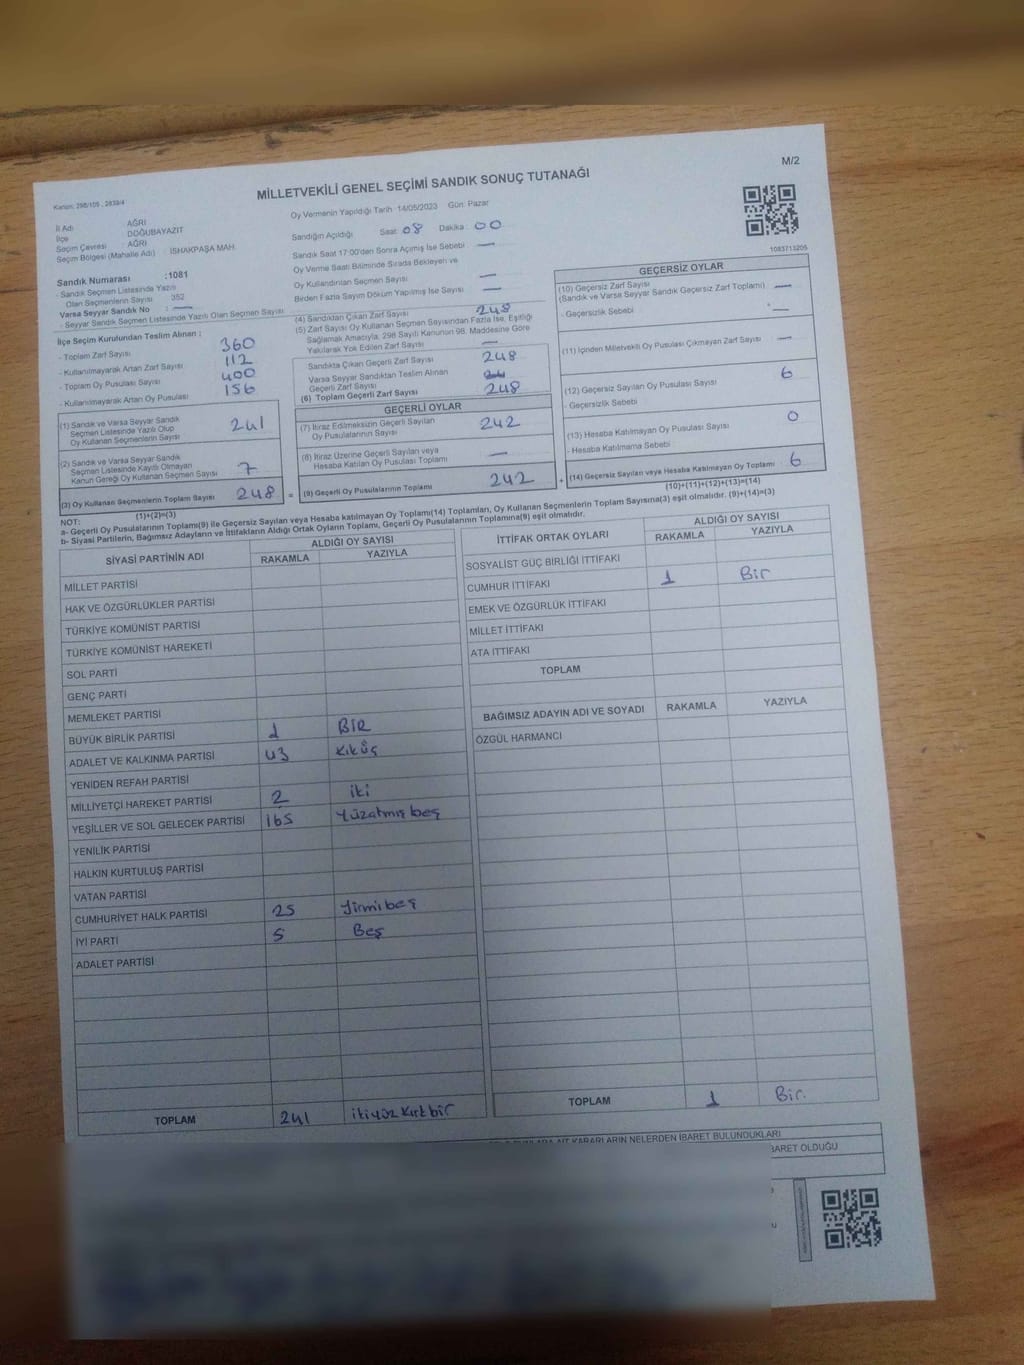 M/2
MİLLETVEKİLİ GENEL SEÇİMİ SANDIK SONUÇ TUTANAĞI
Kanun: 298/105 , 2839/4
İl Adı : AĞRI
İlçe : DOĞUBAYAZIT
Seçim Çevresi : AĞRI
Seçim Bölgesi (Mahalle Adı) : İSHAKPAŞA MAH.
Sandık Numarası :1081
- Sandık Seçmen Listesinde Yazılı
Olan Seçmenlerin Sayısı 352
Varsa Seyyar Sandık No : —
- Seyyar Sandık Seçmen Listesinde Yazılı Olan Seçmen Sayısı
İlçe Seçim Kurulundan Teslim Alınan :
- Toplam Zarf Sayısı 360
- Kullanılmayarak Artan Zarf Sayısı 112
- Toplam Oy Pusulası Sayısı 400
- Kullanılmayarak Artan Oy Pusulası 156
(1) Sandık ve Varsa Seyyar Sandık
Seçmen Listesinde Yazılı Olup
Oy Kullanan Seçmenlerin Sayısı 241
(2) Sandık ve Varsa Seyyar Sandık
Seçmen Listesinde Kayıtlı Olmayan
Kanun Gereği Oy Kullanan Seçmen Sayısı 7
(3) Oy Kullanan Seçmenlerin Toplam Sayısı 248 =
(1)+(2)=(3)
Oy Vermenin Yapıldığı Tarih 14/05/2023 Gün: Pazar
Sandığın Açıldığı Saat 08 Dakika 00
Sandık Saat 17:00'den Sonra Açılmış İse Sebebi —
Oy Verme Saati Bitiminde Sırada Bekleyen ve
Oy Kullandırılan Seçmen Sayısı —
Birden Fazla Sayım Döküm Yapılmış İse Sayısı —
(4) Sandıktan Çıkan Zarf Sayısı 248
(5) Zarf Sayısı Oy Kullanan Seçmen Sayısından Fazla İse, Eşitliği
Sağlamak Amacıyla, 298 Sayılı Kanunun 98. Maddesine Göre
Yakılarak Yok Edilen Zarf Sayısı —
Sandıkta Çıkan Geçerli Zarf Sayısı 248
Varsa Seyyar Sandıktan Teslim Alınan
Geçerli Zarf Sayısı
(6) Toplam Geçerli Zarf Sayısı 248
GEÇERLİ OYLAR
(7) İtiraz Edilmeksizin Geçerli Sayılan
Oy Pusulalarının Sayısı 242
(8) İtiraz Üzerine Geçerli Sayılan veya
Hesaba Katılan Oy Pusulası Toplamı —
(9) Geçerli Oy Pusulalarının Toplamı 242 +
1083713205
GEÇERSİZ OYLAR
(10) Geçersiz Zarf Sayısı
(Sandık ve Varsa Seyyar Sandık Geçersiz Zarf Toplamı) —
- Geçersizlik Sebebi —
(11) İçinden Milletvekili Oy Pusulası Çıkmayan Zarf Sayısı —
(12) Geçersiz Sayılan Oy Pusulası Sayısı 6
- Geçersizlik Sebebi
(13) Hesaba Katılmayan Oy Pusulası Sayısı 0
- Hesaba Katılmama Sebebi
(14) Geçersiz Sayılan veya Hesaba Katılmayan Oy Toplamı 6
(10)+(11)+(12)+(13)=(14)
NOT:
a- Geçerli Oy Pusulalarının Toplamı(9) ile Geçersiz Sayılan veya Hesaba katılmayan Oy Toplamı(14) Toplamları, Oy Kullanan Seçmenlerin Toplam Sayısına(3) eşit olmalıdır. (9)+(14)=(3)
b- Siyasi Partilerin, Bağımsız Adayların ve İttifakların Aldığı Ortak Oyların Toplamı, Geçerli Oy Pusulalarının Toplamına(9) eşit olmalıdır.
SİYASİ PARTİNİN ADI ALDIĞI OY SAYISI
RAKAMLA YAZIYLA
MİLLET PARTİSİ
HAK VE ÖZGÜRLÜKLER PARTİSİ
TÜRKİYE KOMÜNİST PARTİSİ
TÜRKİYE KOMÜNİST HAREKETİ
SOL PARTİ
GENÇ PARTİ
MEMLEKET PARTİSİ
BÜYÜK BİRLİK PARTİSİ 1 BİR
ADALET VE KALKINMA PARTİSİ 43 Kıküç
YENİDEN REFAH PARTİSİ
MİLLİYETÇİ HAREKET PARTİSİ 2 iki
YEŞİLLER VE SOL GELECEK PARTİSİ 165 Yüzatmış beş
YENİLİK PARTİSİ
HALKIN KURTULUŞ PARTİSİ
VATAN PARTİSİ
CUMHURİYET HALK PARTİSİ 25 Yirmibeş
İYİ PARTİ 5 Beş
ADALET PARTİSİ
TOPLAM 241 ikiyüz Kırkbir
İTTİFAK ORTAK OYLARI ALDIĞI OY SAYISI
RAKAMLA YAZIYLA
SOSYALİST GÜÇ BİRLİĞİ İTTİFAKI
CUMHUR İTTİFAKI 1 Bir
EMEK VE ÖZGÜRLÜK İTTİFAKI
MİLLET İTTİFAKI
ATA İTTİFAKI
TOPLAM
BAĞIMSIZ ADAYIN ADI VE SOYADI RAKAMLA YAZIYLA
ÖZGÜL HARMANCI
TOPLAM 1 Bir.
KARARLARIN NELERDEN İBARET BULUNDUKLARI
İBARET OLDUĞU